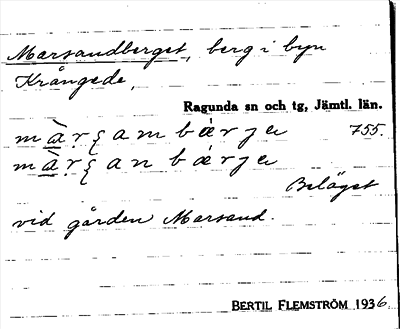 Marsandberget, berg i byn
Krångede,
Ragunda sn och tg, Jämtl. län.
755.
Beläget
vid gården Marsand.
BERTIL FLEMSTRÖM 1936.